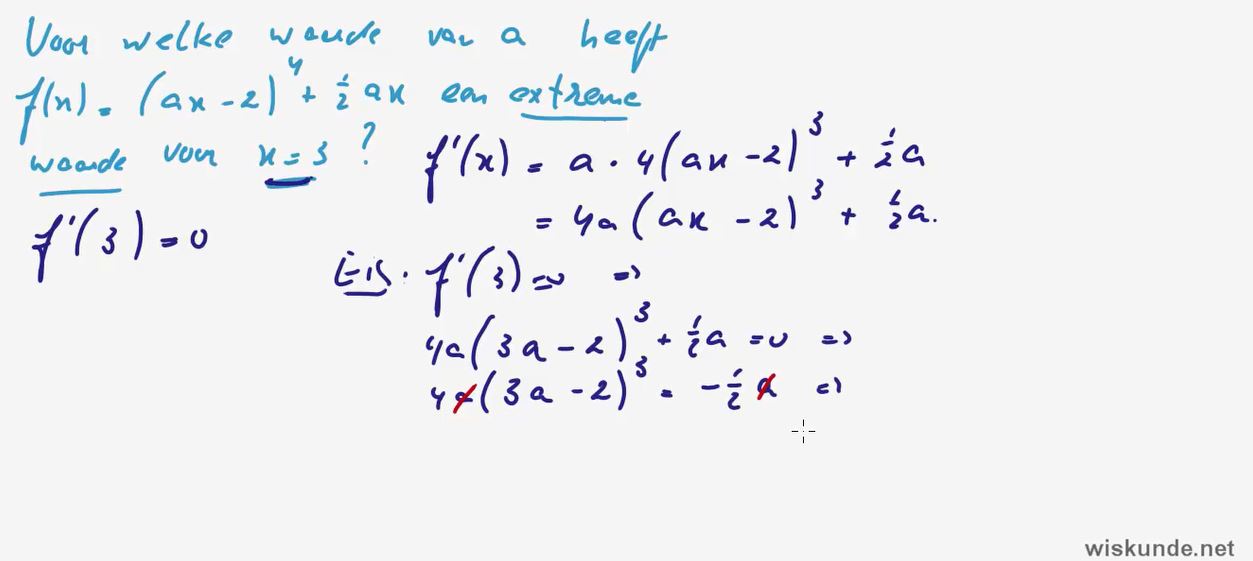 Voor welke waarde van a heeft
f(x) = (ax - 2)^4 + 1/2 ax een extreme
waarde voor x = 3 ?
f'(x) = a · 4(ax - 2)^3 + 1/2 a
= 4a(ax - 2)^3 + 1/2 a.
f'(3) = 0
Eis: f'(3) = 0 =>
4a(3a - 2)^3 + 1/2 a = 0 =>
4a(3a - 2)^3 = - 1/2 a =>
wiskunde.net